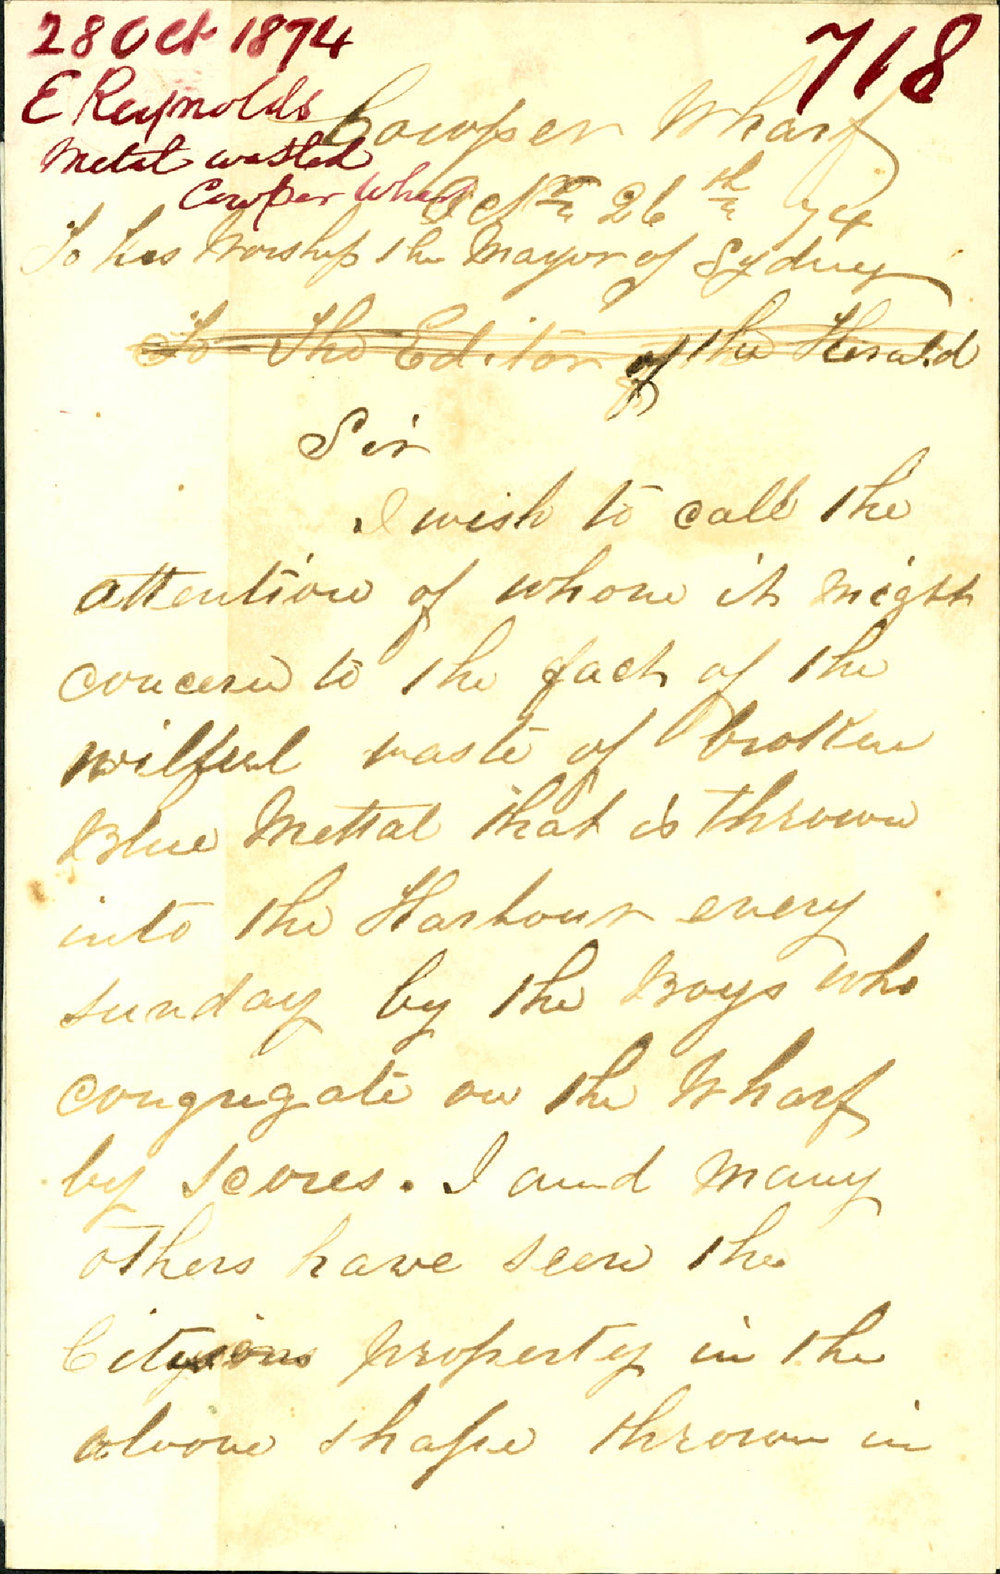 28 Oct 1874
718
E Reynolds
Metal wasted
Cowper Wharf
Cowper Wharf
Octbr 26th 74
To his Worship the Mayor of Sydney
To The Editor of the Herald
Sir
I wish to call the
attention of whom it might
concern to the fact of the
wilful waste of broken
Blue Mettal that is thrown
into the Harbour every
sunday by the Boys who
congregate on the Wharf
by scores. I and many
others have seen the
Cityzens property in the
above shape thrown in